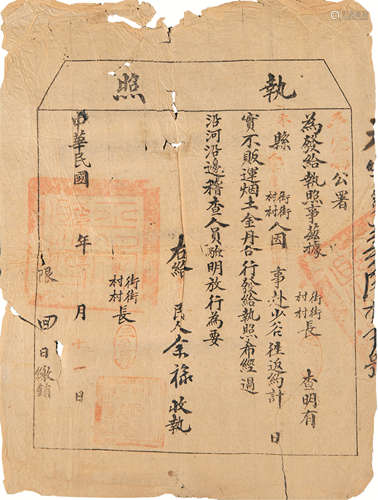 執照
公署
為發給執照事茲據 街街村村長 查明有
縣 街街村村人 因 事赴 谷 往返約計 日
實不販運烟土金丹合行發給執照希經過
沿河沿邊稽查人員驗明放行為要
右給 民人余祿收執
中華民國 年 月十一日
街街村村長
限 日繳銷